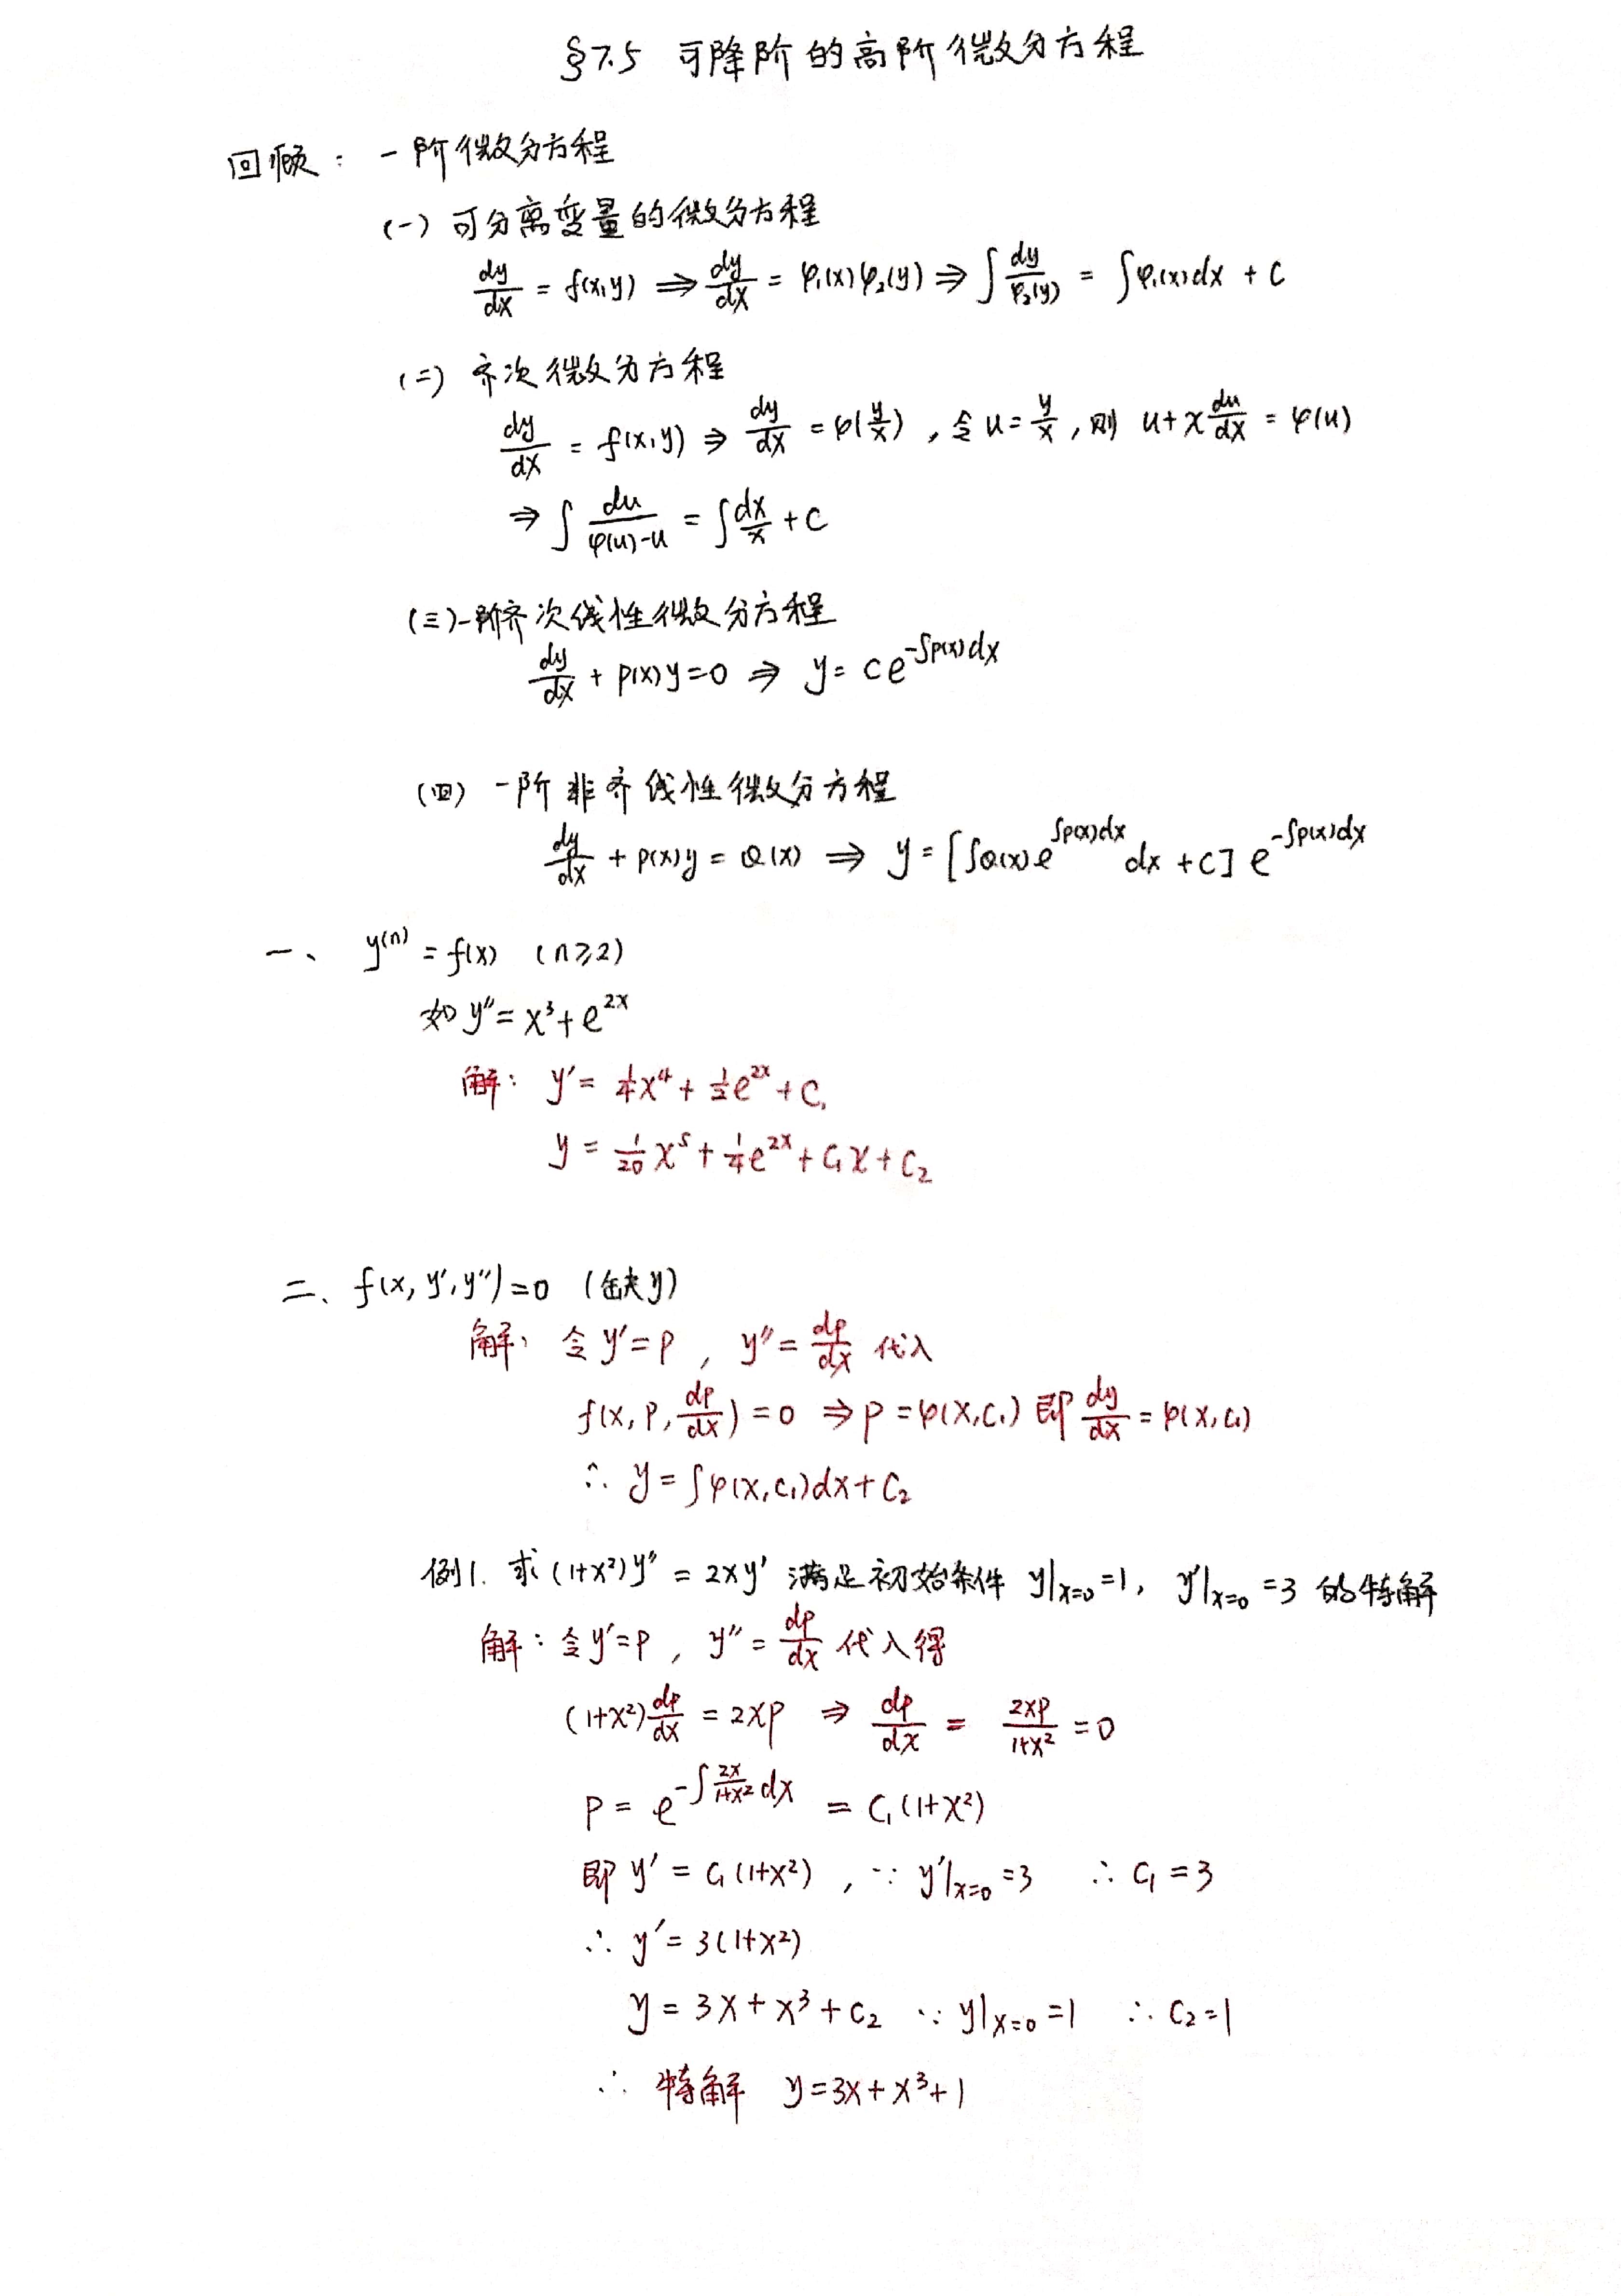 §7.5 可降阶的高阶微分方程
回顾：一阶微分方程
(一) 可分离变量的微分方程
dy/dx = f(x,y) ⇒ dy/dx = φ₁(x)φ₂(y) ⇒ ∫ dy/φ₂(y) = ∫φ₁(x)dx + C
(二) 齐次微分方程
dy/dx = f(x,y) ⇒ dy/dx = φ(y/x) , 令 u = y/x , 则 u + x du/dx = φ(u)
⇒ ∫ du/(φ(u)-u) = ∫ dx/x + C
(三) 一阶齐次线性微分方程
dy/dx + p(x)y = 0 ⇒ y = Ce^(-∫p(x)dx)
(四) 一阶非齐线性微分方程
dy/dx + p(x)y = Q(x) ⇒ y = [∫Q(x)e^(∫p(x)dx) dx + C] e^(-∫p(x)dx)
一、 y⁽ⁿ⁾ = f(x) (n≥2)
如 y″ = x³ + e^(2x)
解： y′ = 1/4 x⁴ + 1/2 e^(2x) + C₁
y = 1/20 x⁵ + 1/4 e^(2x) + C₁x + C₂
二、 f(x, y′, y″) = 0 (缺y)
解： 令 y′ = P , y″ = dp/dx 代入
f(x, P, dp/dx) = 0 ⇒ P = φ(x, C₁) 即 dy/dx = φ(x, C₁)
∴ y = ∫φ(x, C₁)dx + C₂
例1. 求 (1+x²)y″ = 2xy′ 满足初始条件 y|x=0 = 1, y′|x=0 = 3 的特解
解：令 y′ = P , y″ = dp/dx 代入得
(1+x²) dp/dx = 2xp ⇒ dp/dx = 2xp/(1+x²) = 0
P = e^(-∫ 2x/(1+x²) dx) = C₁(1+x²)
即 y′ = C₁(1+x²) , ∵ y′|x=0 = 3 ∴ C₁ = 3
∴ y′ = 3(1+x²)
y = 3x + x³ + C₂ ∵ y|x=0 = 1 ∴ C₂ = 1
∴ 特解 y = 3x + x³ + 1